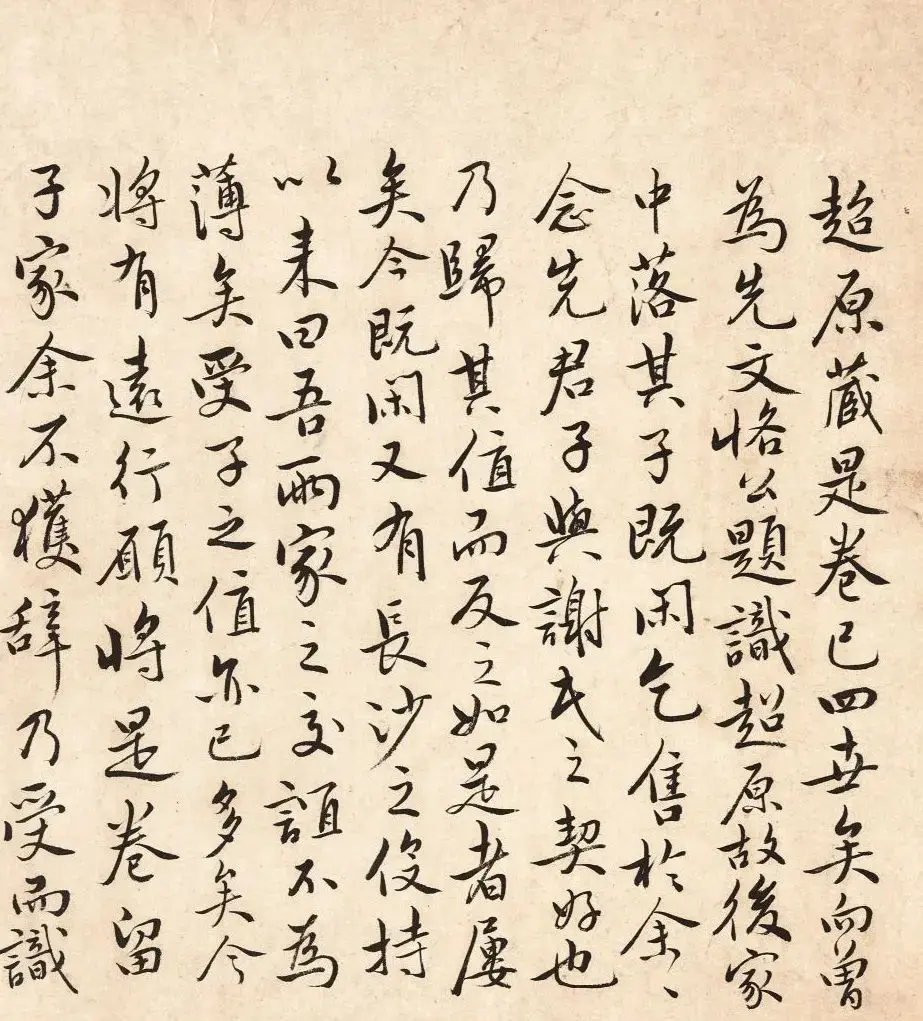 超原藏是卷已四世矣向曾
為先文恪公題識超原故後家
中落其子既閑乞售於余〻
念先君子與謝氏之契好也
乃歸其值而反之如是者屢
矣今既閑又有長沙之役持
以来曰吾兩家之交誼不為
薄矣受子之值亦已多矣今
将有遠行願将是卷留
子家余不獲辞乃受而識